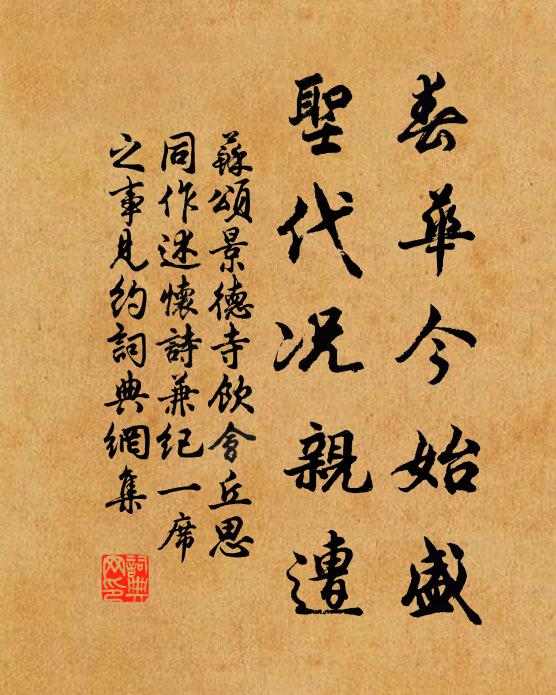 春華今始盛
聖代况親遭
蘇頌景德寺飲會丘思
同作述懷詩兼紀一席
之事見約詞典網集
詞典网印